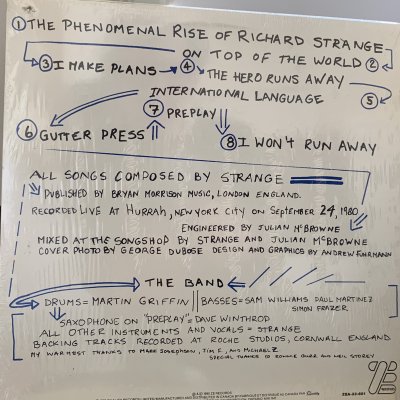 ① THE PHENOMENAL RISE OF RICHARD STRANGE
ON TOP OF THE WORLD ②
③ I MAKE PLANS → ④ THE HERO RUNS AWAY
INTERNATIONAL LANGUAGE ⑤
⑦ PREPLAY
⑥ GUTTER PRESS
⑧ I WON'T RUN AWAY
ALL SONGS COMPOSED BY STRANGE
PUBLISHED BY BRYAN MORRISON MUSIC, LONDON ENGLAND.
RECORDED LIVE AT HURRAH, NEW YORK CITY ON SEPTEMBER 24, 1980
ENGINEERED BY JULIAN McBROWNE
MIXED AT THE SONGSHOP BY STRANGE AND JULIAN McBROWNE
COVER PHOTO BY GEORGE DUBOSE DESIGN AND GRAPHICS BY ANDREW FUHRMANN
THE BAND
DRUMS = MARTIN GRIFFIN || BASSES = SAM WILLIAMS PAUL MARTINEZ
SIMON FRAZER
SAXOPHONE ON "PREPLAY" = DAVE WINTHROP
ALL OTHER INSTRUMENTS AND VOCALS = STRANGE
BACKING TRACKS RECORDED AT ROCHE STUDIOS, CORNWALL ENGLAND
MY WARMEST THANKS TO MARK JOSEPHSON, TIM S., AND MICHAEL Z
SPECIAL THANKS TO RONNIE GURR AND NEIL STOREY